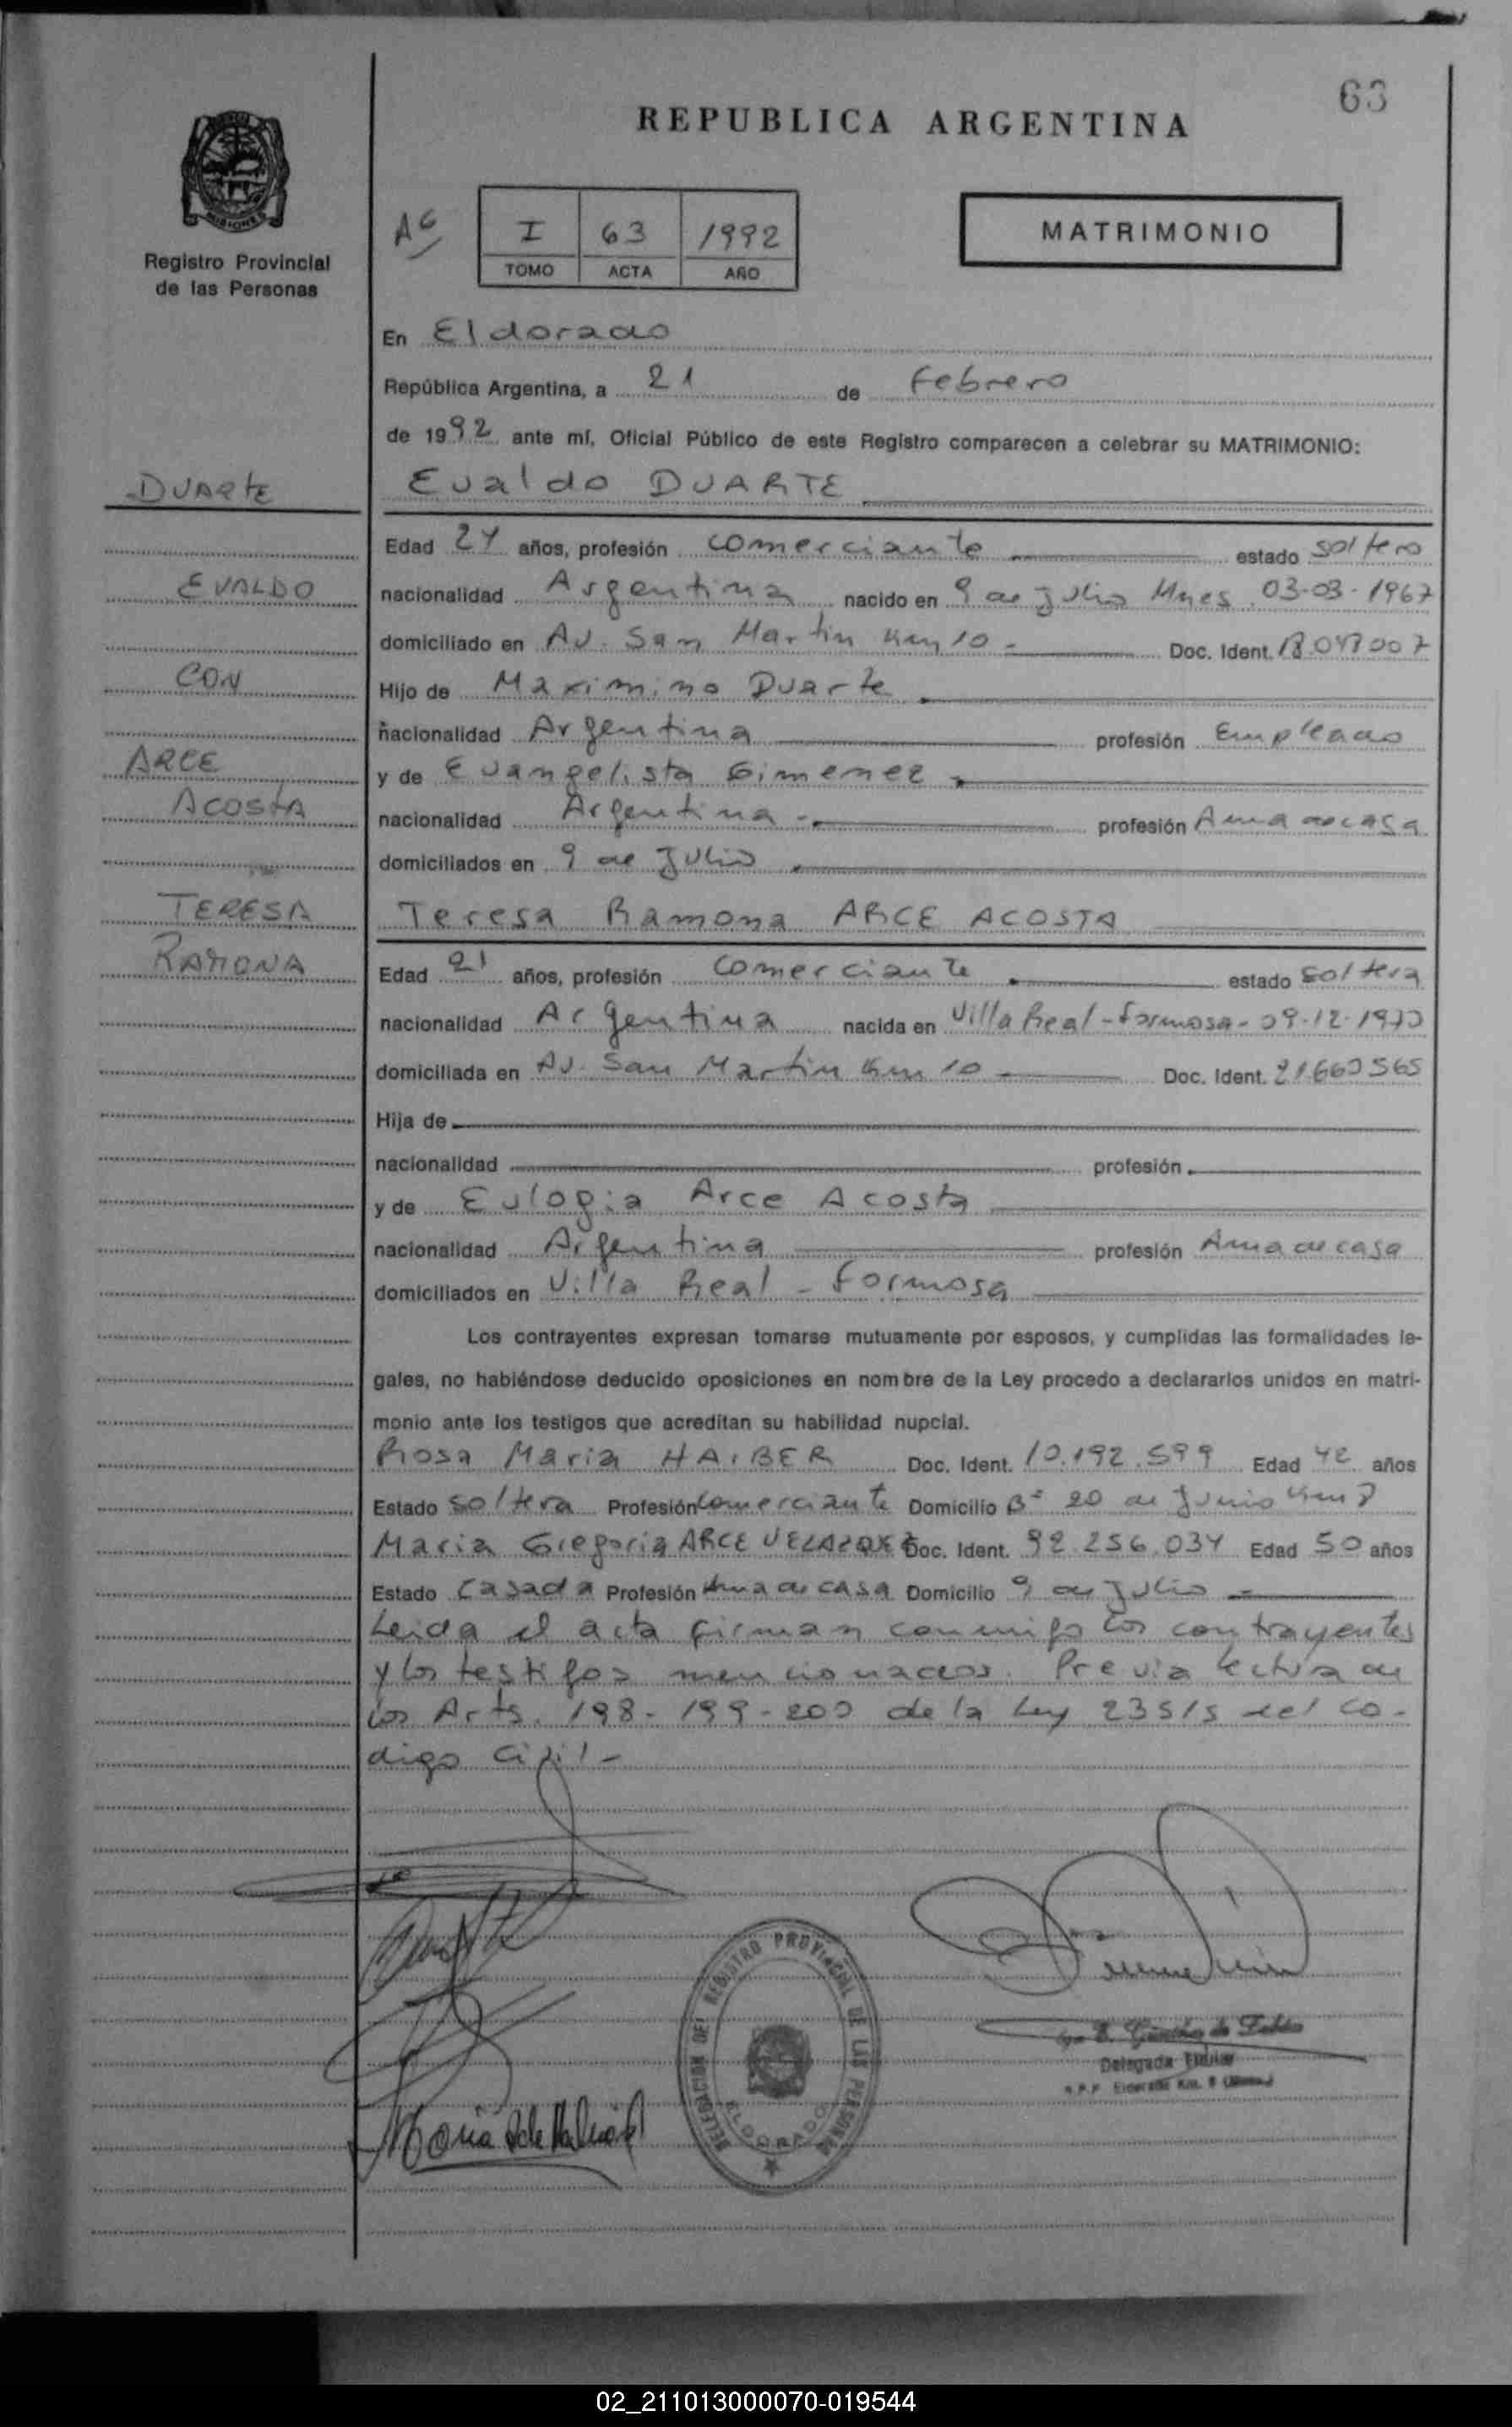 63
REPUBLICA ARGENTINA
Registro Provincial
de las Personas
I 63 1992
TOMO ACTA AÑO
MATRIMONIO
En Eldorado
República Argentina, a 21 de Febrero
de 1992 ante mí, Oficial Público de este Registro comparecen a celebrar su MATRIMONIO:
DUARTE
Evaldo DUARTE
Edad 24 años, profesión comerciante estado soltero
EVALDO
nacionalidad Argentina nacido en 9 de Julio Mnes. 03-03-1967
domiciliado en Av. San Martin Km 10 - Doc. Ident. 18.047007
CON
Hijo de Maximino Duarte
nacionalidad Argentina profesión Empleado
ARCE
y de Evangelista Gimenez
ACOSTA
nacionalidad Argentina - profesión Ama de casa
domiciliados en 9 de Julio
TERESA
Teresa Ramona ARCE ACOSTA
RAMONA
Edad 21 años, profesión comerciante estado soltera
nacionalidad Argentina nacida en Villa Real - Formosa - 09-12-1970
domiciliada en Av. San Martin Km 10 - Doc. Ident. 21.660565
Hija de
nacionalidad profesión
y de Eulogia Arce Acosta
nacionalidad Argentina profesión Ama de casa
domiciliados en Villa Real - Formosa
Los contrayentes expresan tomarse mutuamente por esposos, y cumplidas las formalidades le-
gales, no habiéndose deducido oposiciones en nombre de la Ley procedo a declararlos unidos en matri-
monio ante los testigos que acreditan su habilidad nupcial.
Rosa Maria HAIBER Doc. Ident. 10.192.599 Edad 42 años
Estado soltera Profesión Comerciante Domicilio Bº 20 de Junio Km
Maria Gregoria ARCE VELAZQUEZ Doc. Ident. 92.256.034 Edad 50 años
Estado Casada Profesión Ama de casa Domicilio 9 de Julio -
Leida el acta firman conmigo los contrayentes
y los testigos mencionados. Previa lectura de
los Arts. 198- 199-200 de la Ley 23515 del Co-
digo Civil-
DELEGACION DEL REGISTRO PROVINCIAL DE LAS PERSONAS
ELDORADO
Delegada Titular
02_211013000070-019544